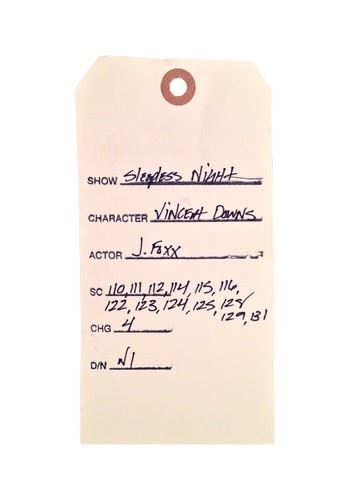 SHOW Sleepless Night
CHARACTER Vincent Downs
ACTOR J. Foxx
SC 110, 111, 112, 114, 115, 116,
122, 123, 124, 125, 128
129, 131
CHG 4
D/N N1